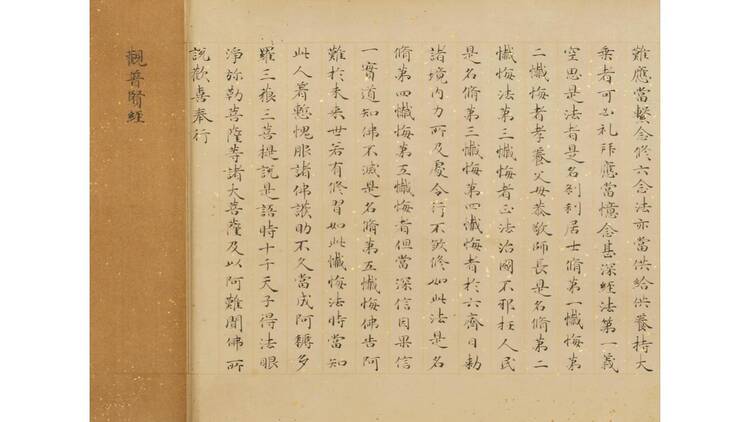 難應當繫念修六念法亦當供給供養持大
乘者不必礼拜應當憶念甚深經法第一義
空思是法者是名刹利居士脩第一懺悔第
二懺悔者孝養父母恭敬師長是名脩第二
懺悔法第三懺悔者正法治國不邪枉人民
是名脩第三懺悔第四懺悔者於六齋日勑
諸境内力所及處令行不煞修如此法是名
脩第四懺悔第五懺悔者但當深信因果信
一實道知佛不滅是名脩第五懺悔佛告阿
難於未來世若有修習如此懺悔法時當知
此人著慙愧服諸佛護助不久當成阿耨多
羅三藐三菩提說是語時十千天子得法眼
淨弥勒菩薩等諸大菩薩及以阿難聞佛所
說歡喜奉行
觀普賢經